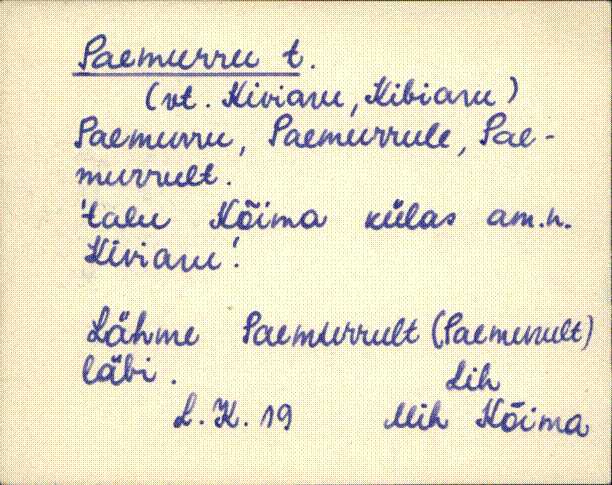 Paemurru t.
(vt. Kiviaru, Kibiaru)
Paemurru, Paemurrule, Pae-
murrult.
'talu Kõima külas am.n.
Kiviaru'.
Lähme Paemurrult (Paemurult)
läbi. Lih
L.K. 19 Mih Kõima